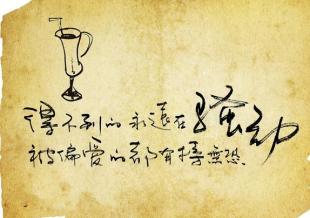 得不到的永遠在騷动
被偏愛的都有恃無恐